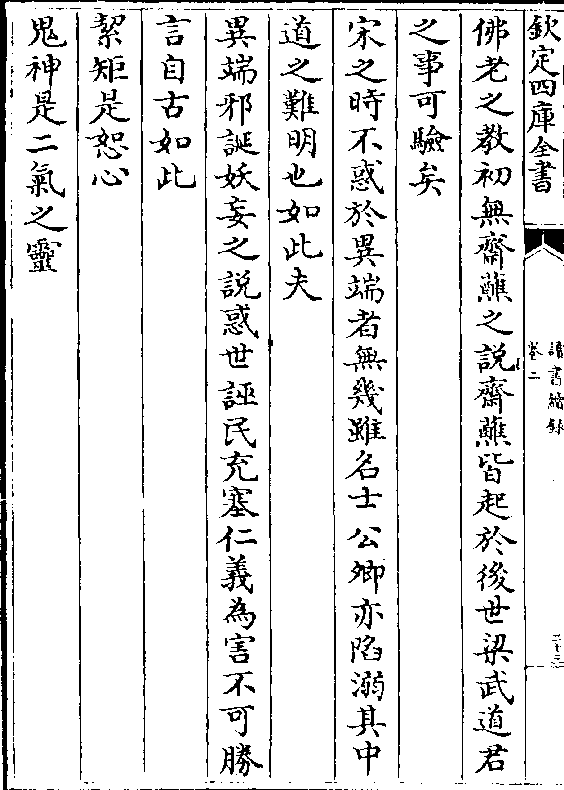 欽定四庫全書
讀書續錄
卷二
佛老之教初無齋蘸之說齋蘸皆起於後世梁武道君
之事可驗矣
宋之時不惑於異端者無幾雖名士公卿亦陷溺其中
道之難明也如此夫
異端邪誕妖妄之說惑世誣民充塞仁義為害不可勝
言自古如此
絜矩是恕心
鬼神是二氣之靈